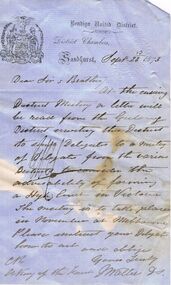 Bendigo United District.
District Chambers,
Sandhurst, Sept 22 1875
Dear Sir & Brother
At the ensuing
District Meeting a letter will
be read from the Geelong
District requesting the District
to send Delegates to a meeting
of Delegates from the various
Districts to consider the
advisability of forming
a High Court in Victoria
The meeting is to take place
in November at Melbourne
Please instruct your Delegate
how to act and oblige
Yours truly